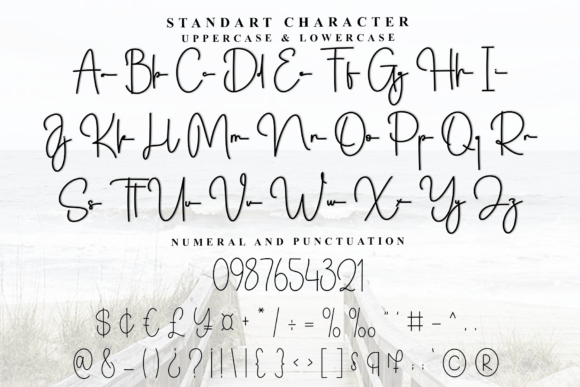 STANDART CHARACTER
UPPERCASE & LOWERCASE
Aa Bb Cc Dd Ee Ff Gg Hh Ii
Jj Kk Ll Mm Nn Oo Pp Qq Rr
Ss Tt Uu Vv Ww Xx Yy Zz
NUMERAL AND PUNCTUATION
0987654321
$ ¢ € £ ¥ ¤ + * / ÷ = % ‰ " ' # – ^ . .
@ & _ ( ) ¿ ? ¡ ! \ | { } < > [ ] § ¶ ; : ' © ®